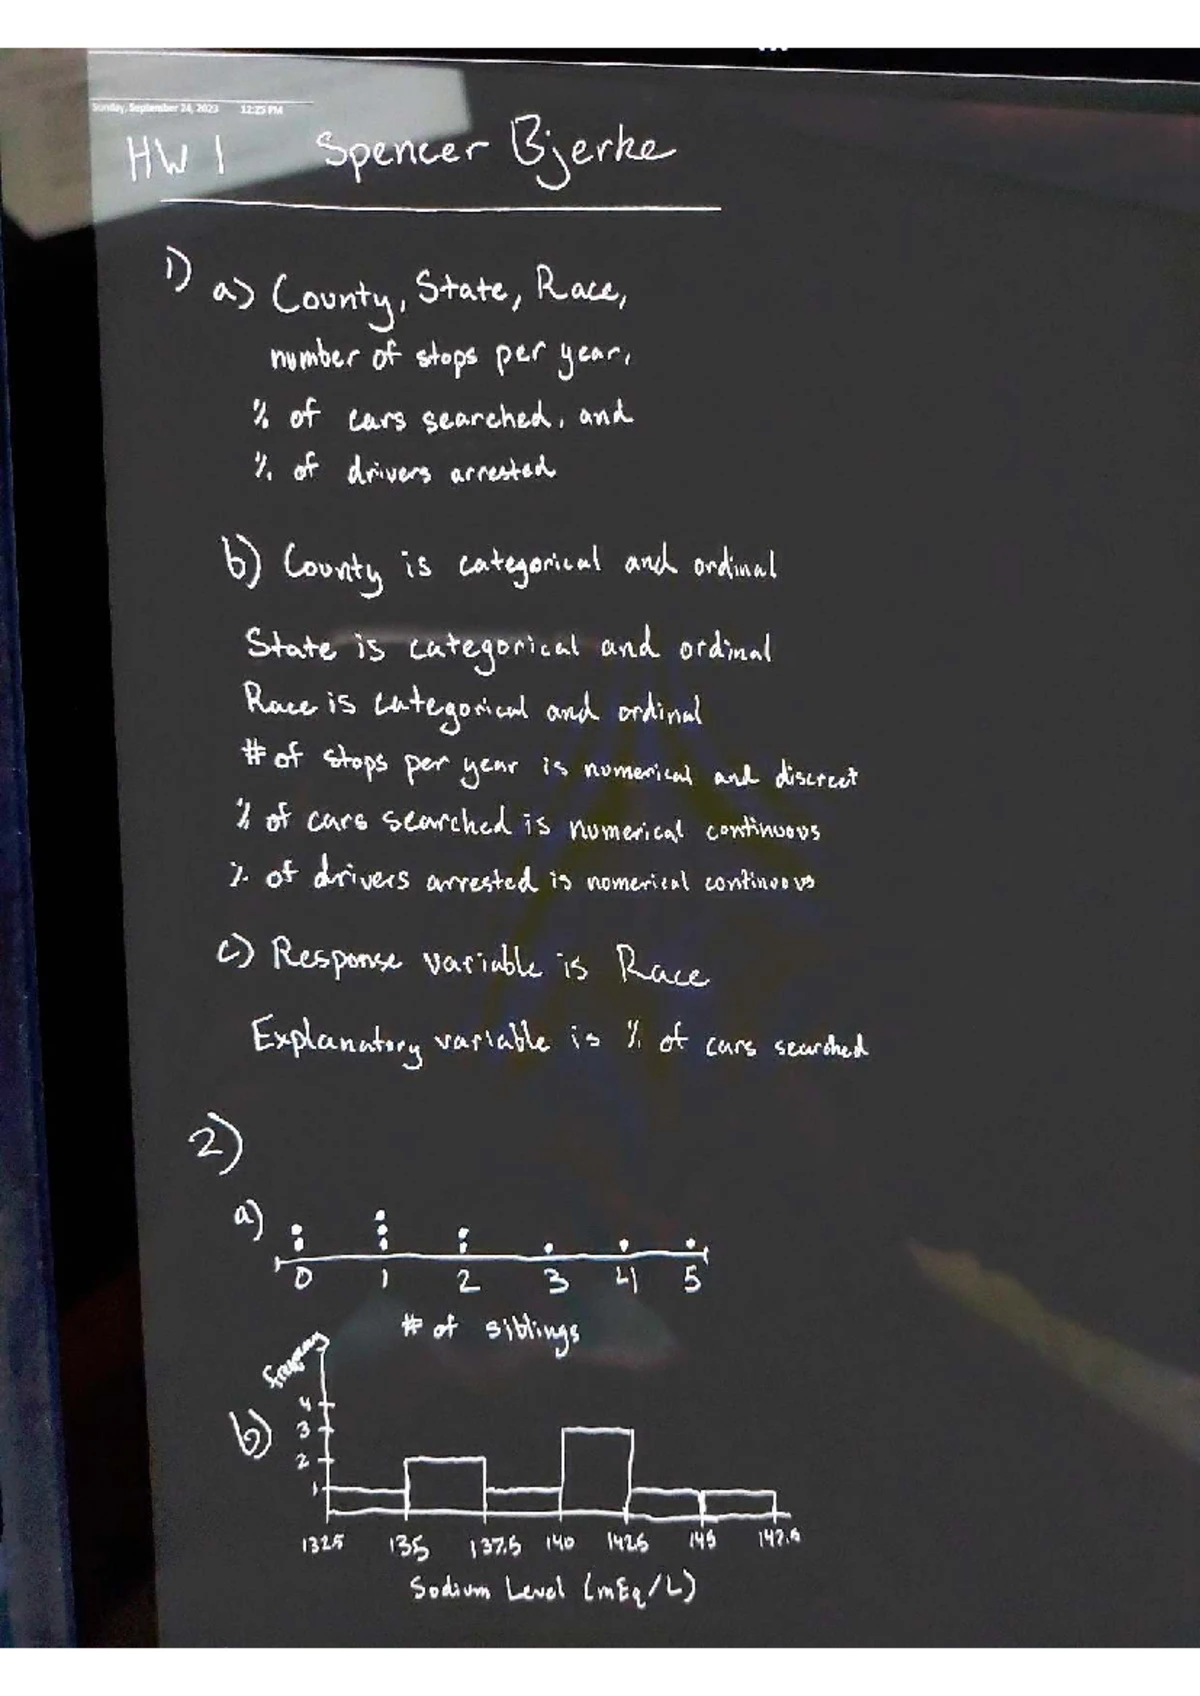 Sunday, September 24, 2023 12:25 PM
HW 1 Spencer Bjerke
1) a) County, State, Race,
number of stops per year,
% of cars searched, and
% of drivers arrested
b) County is categorical and ordinal
State is categorical and ordinal
Race is categorical and ordinal
# of stops per year is numerical and discreet
% of cars searched is numerical continuous
% of drivers arrested is numerical continuous
c) Response variable is Race
Explanatory variable is % of cars searched
2)
a)
0 1 2 3 4 5
# of siblings
b)
4
3
2
1
132.5 135 137.5 140 142.5 145 147.5
Sodium Level (mEq/L)